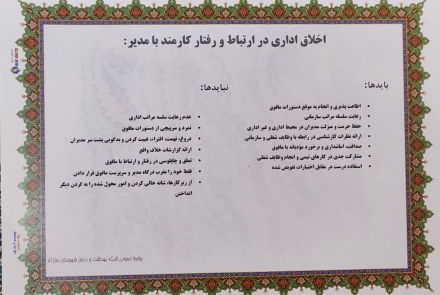 اخلاق اداری در ارتباط و رفتار کارمند با مدیر:
بایدها:
اطاعت پذیری و انجام به موقع دستورات مافوق
رعایت سلسله مراتب سازمانی
حفظ حرمت و منزلت مدیران در محیط اداری و غیر اداری
ارائه نظرات کارشناسی در رابطه با وظایف شغلی و سازمانی
صداقت، امانتداری و برخورد مؤدبانه با مافوق
مشارکت جدی در کارهای تیمی و انجام وظایف شغلی
استفاده درست در مقابل اختیارات تفویض شده
نبایدها:
عدم رعایت سلسله مراتب اداری
تمرد و سرپیچی از دستورات مافوق
دروغ، تهمت، افتراء، غیبت کردن و بدگویی پشت سر مدیران
ارائه گزارشات خلاف واقع
تملق و چاپلوسی در رفتار و ارتباط با مافوق
فقط خود را مقرب درگاه مدیر و سرپرست مافوق قرار دادن
از زیر کارها، شانه خالی کردن و امور محول شده را به گردن دیگر
انداختن
روابط عمومی شبکه بهداشت و درمان شهرستان مبارکه